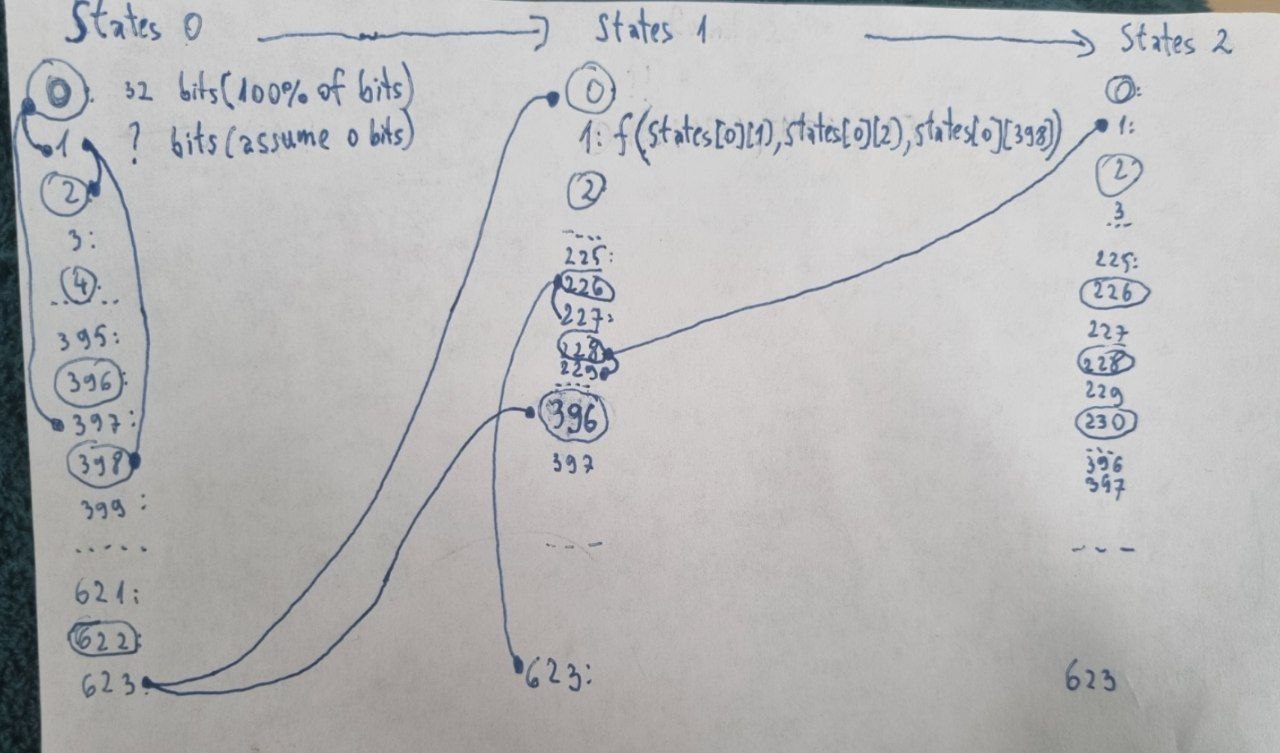 States 0
States 1
States 2
0: 32 bits(100% of bits)
1 ? bits(assume 0 bits)
2
3:
4:
.......
395:
396:
397:
398
399:
.....
621:
622:
623:
0
1: f(states[0][1],states[0][2],states[0][398])
2
----
225:
226
227:
228
229
....
396
397
---
623:
0:
1:
2
3
---
225:
226
227
228
229
230
...
396
397
---
623